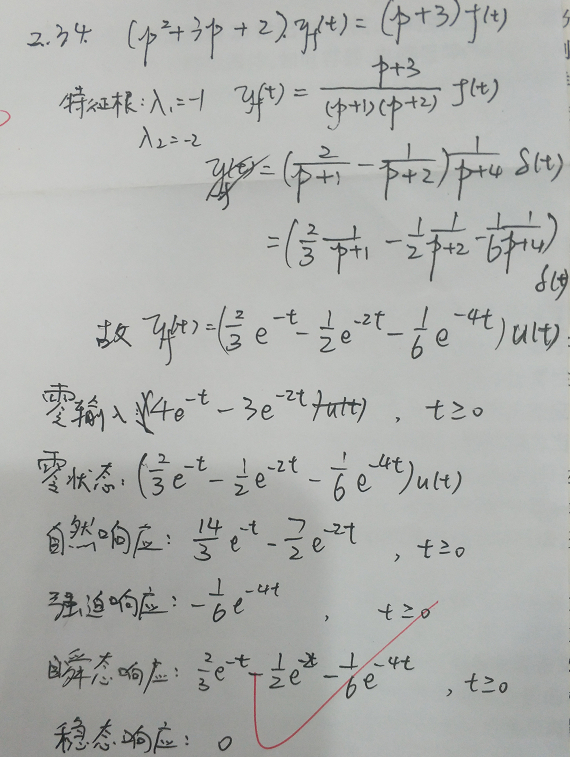 2.34. (p²+3p+2)·y_f(t) = (p+3) f(t)
特征根: λ₁=-1 y_f(t) = \frac{p+3}{(p+1)(p+2)} f(t)
λ₂=-2
y_f(t) = (\frac{2}{p+1} - \frac{1}{p+2}) \frac{1}{p+4} δ(t)
= (\frac{2}{3} \frac{1}{p+1} - \frac{1}{2} \frac{1}{p+2} - \frac{1}{6} \frac{1}{p+4})
δ(t)
故 y_f(t) = (\frac{2}{3} e^{-t} - \frac{1}{2} e^{-2t} - \frac{1}{6} e^{-4t}) u(t)
零输入: (4e^{-t} - 3e^{-2t}) u(t) , t≥0
零状态: (\frac{2}{3} e^{-t} - \frac{1}{2} e^{-2t} - \frac{1}{6} e^{-4t}) u(t)
自然响应: \frac{14}{3} e^{-t} - \frac{7}{2} e^{-2t} , t≥0
强迫响应: -\frac{1}{6} e^{-4t} , t≥0
瞬态响应: \frac{2}{3} e^{-t} - \frac{1}{2} e^{-2t} - \frac{1}{6} e^{-4t} , t≥0
稳态响应: 0